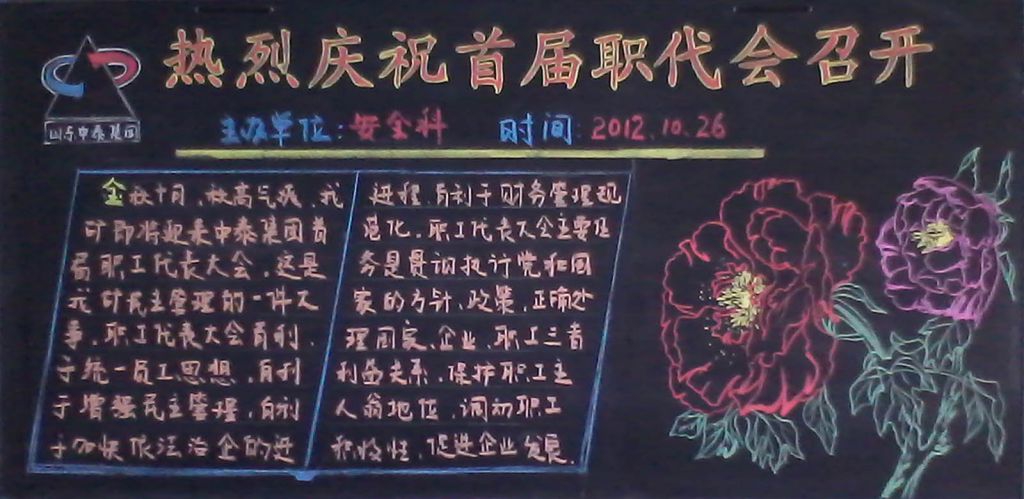 热烈庆祝首届职代会召开
山东中泰集团
主办单位:安全科 时间:2012.10.26
金秋十月,秋高气爽,我
矿即将迎来中泰集团首
届职工代表大会,这是
我矿民主管理的一件大
事,职工代表大会有利
于统一员工思想,有利
于增强民主管理,有利
于加快依法治企的进
进程,有利于财务管理规
范化,职工代表大会主要任
务是贯彻执行党和国
家的方针、政策,正确处
理国家、企业、职工三者
利益关系,保护职工主
人翁地位,调动职工
积极性,促进企业发展.